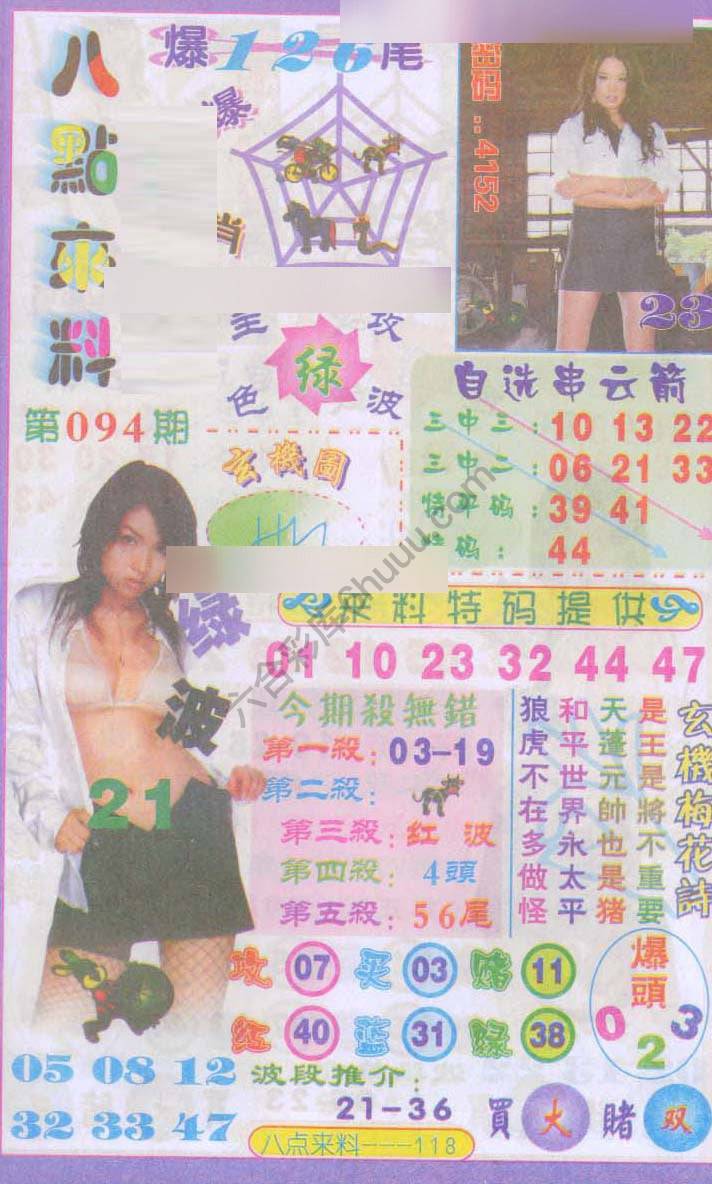 八點來料
第094期
爆126尾
爆
肖
全攻
绿
色波
玄機圖
密码:4152
23
自选串云箭
三中三:10 13 22
三中二:06 21 33
特平码:39 41
码:44
来料特码提供
01 10 23 32 44 47
绿波
21
今期殺無錯
第一殺:03-19
第二殺:
第三殺:红波
第四殺:4頭
第五殺:56尾
玄機梅花詩
是王是將不重要
天蓬元帥也是猪
和平世界永太平
狼虎不在多做怪
攻 07 买 03 赌 11
红 40 蓝 31 绿 38
爆頭
0 2 3
05 08 12
32 33 47
波段推介:
21-36
買大賭双
八点来料---118
六合彩库49huuu.com